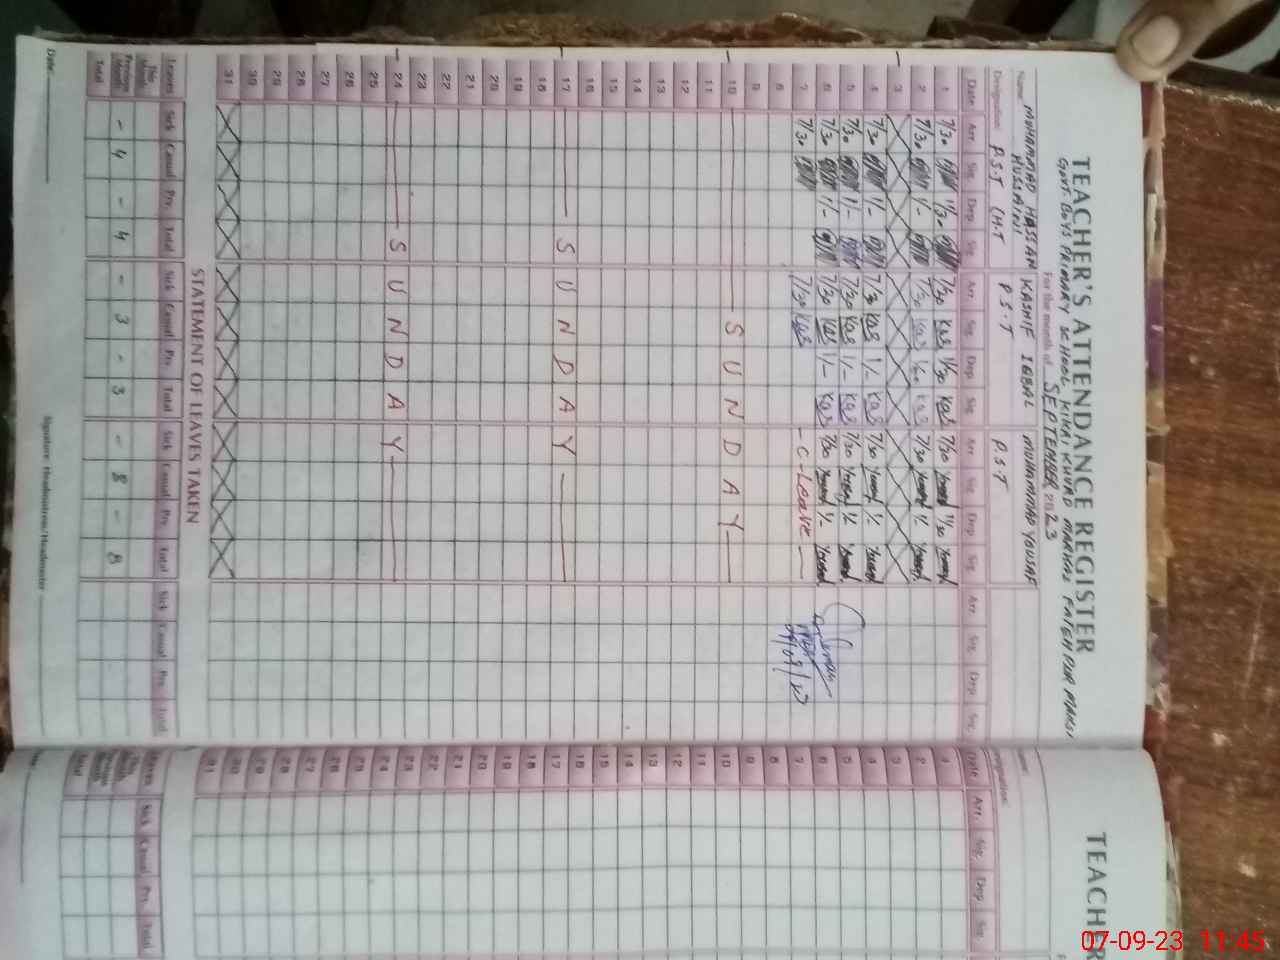 TEACHER'S ATTENDANCE REGISTER
GOVT: BOYS PRIMARY SCHOOL KIKRI KHURD MARKAZ FATEH PUR
For the month of SEPTEMBER 2023
Name: MUHAMMAD HASSAN HUSSAINI KASHIF IQBAL MUHAMMAD YOUSAF
Designation: P.S.T (H.T P.S.T P.S.T
Date Arr. Sig. Dep Sig. Arr. Sig. Dep Sig. Arr. Sig. Dep Sig. Arr. Sig. Dep Sig.
1 7/30 11/30 7/30 Kas 11/30 Kas 7/30 Yousaf 11/30 Yousaf
2 7/30 1/- 7/30 Kas Kas 7/30 Yousaf 1/- Yousaf
3
4 7/30 1/- 7/30 Kas 1/- Kas 7/30 Yousaf 1/- Yousaf
5 7/30 1/- 7/30 Kas 1/- Kas 7/30 Yousaf 1/- Yousaf
6 7/30 1/- 7/30 Kas 1/- Kas 7/30 Yousaf 1/- Yousaf
7 7/30 7/30 Kas - C-Leave -
8
9
10 SUNDAY
11
12
13
14
15
16
17 SUNDAY
18
19
20
21
22
23
24 SUNDAY
25
26
27
28
29
30
31
STATEMENT OF LEAVES TAKEN
Leaves Sick Casual Prv. Total Sick Casual Prv. Total Sick Casual Prv. Total Sick Casual Prv. Total
This Month
Previous Month - 4 - 4 - 3 - 3 - 8 - 8
Total
Date: Signature Headmistress/Headmaster
TEACHER
Name:
Designation:
Date Arr. Sig. Dep Sig.
1
2
3
4
5
6
7
8
9
10
11
12
13
14
15
16
17
18
19
20
21
22
23
24
25
26
27
28
29
30
31
Leaves Sick Casual Prv. Total
This Month
Previous Month
Total
07-09-23 11:45